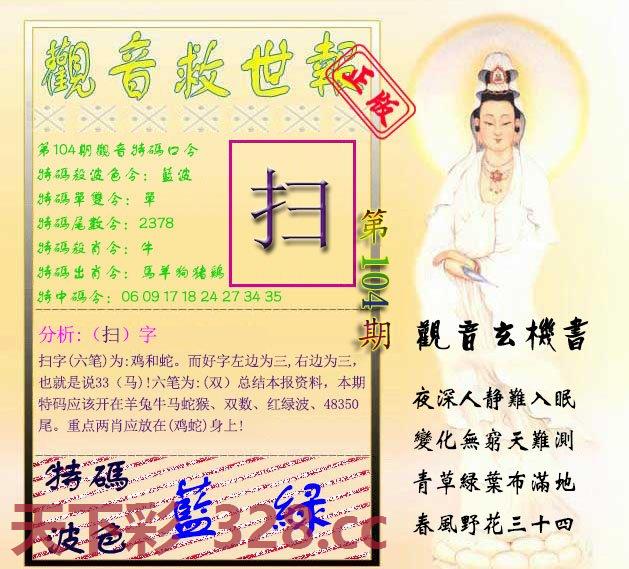 觀音救世報
正版
第104期觀音特碼口令
特碼殺波色令：藍波
特碼單雙令：單
特碼尾數令：2378
特碼殺肖令：牛
特碼出肖令：馬羊狗猪鷄
特中碼令：06 09 17 18 24 27 34 35
扫
第104期
分析:（扫）字
扫字(六笔)为:鸡和蛇。而好字左边为三,右边为三，
也就是说33（马)!六笔为:(双）总结本报资料，本期
特码应该开在羊兔牛马蛇猴、双数、红绿波、48350
尾。重点两肖应放在(鸡蛇)身上!
特碼
波色
藍 綠
天下彩 328.cc
觀音玄機書
夜深人静難入眠
變化無窮天難測
青草綠葉布滿地
春風野花三十四